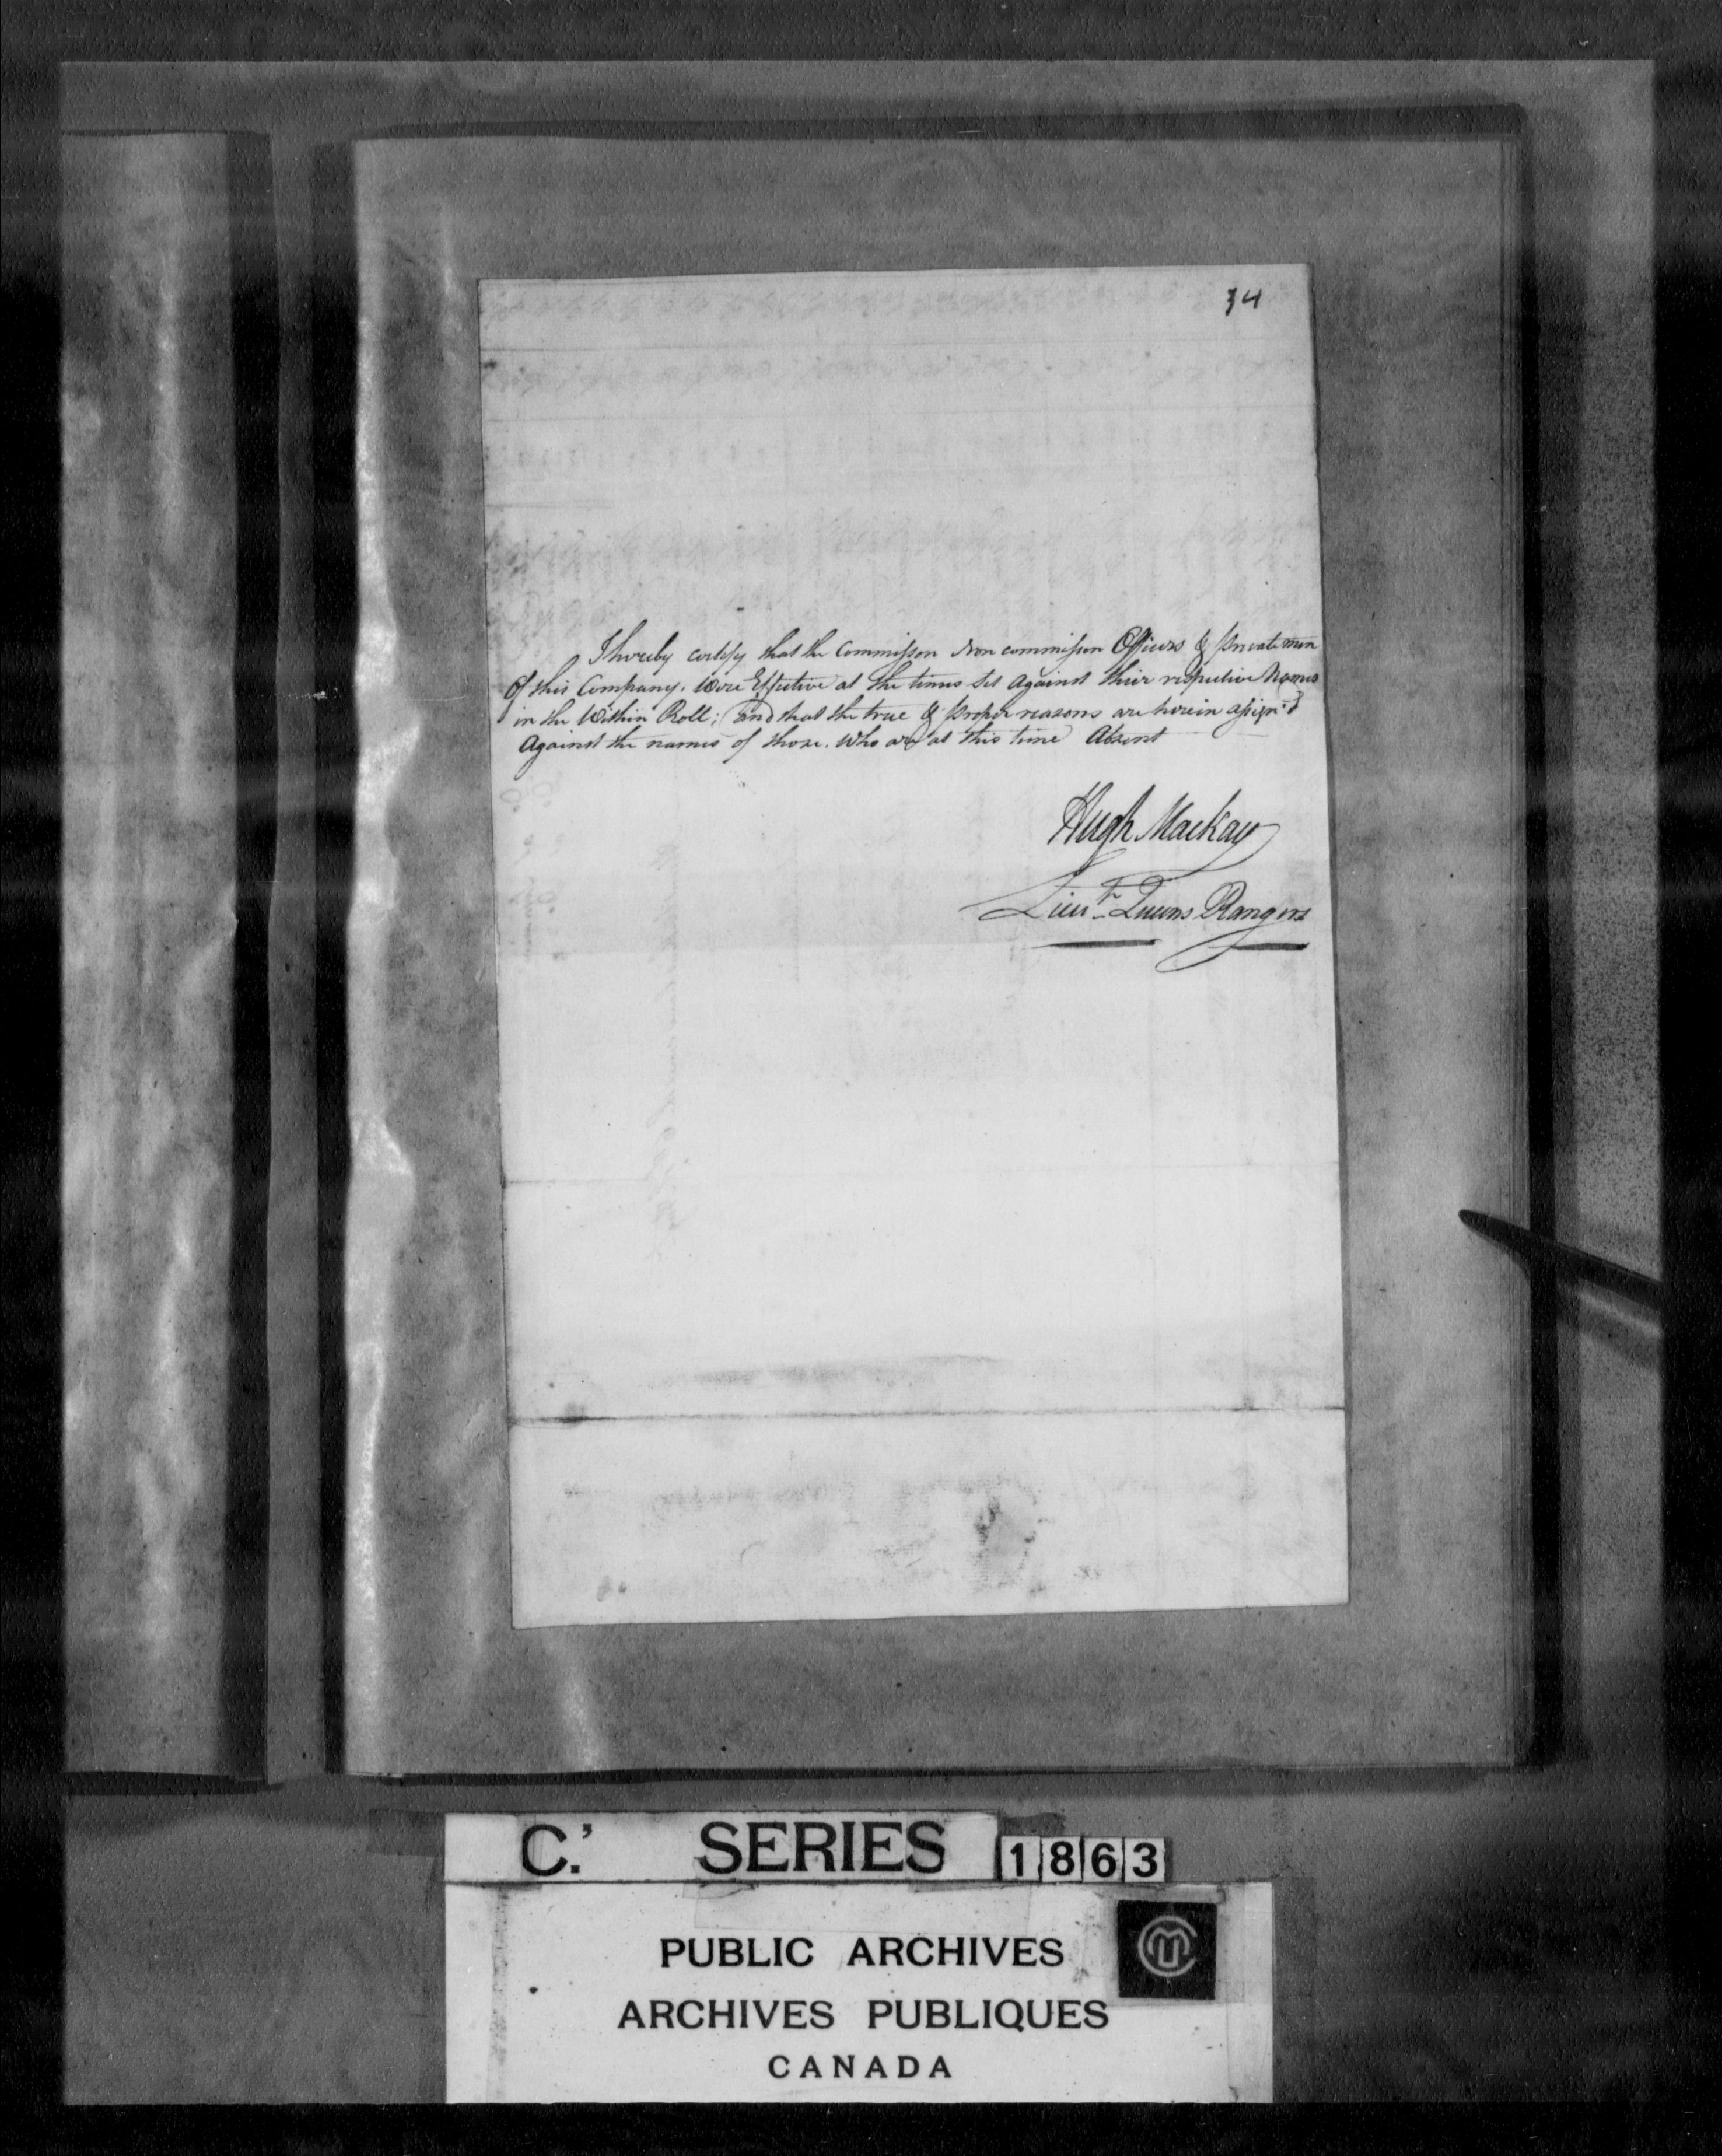 34
I hereby certify that the Commisson Non commission Officers & Private men
Of this Company. Were Effective at the times set Against their respective Names
in the Within Roll; and that the true & proper reasons are herein assign.d
Against the names of those. Who are at this time Absent
Hugh Mackay
Lieut. Queens Rangers
C.' SERIES 1863
PUBLIC ARCHIVES
ARCHIVES PUBLIQUES
CANADA